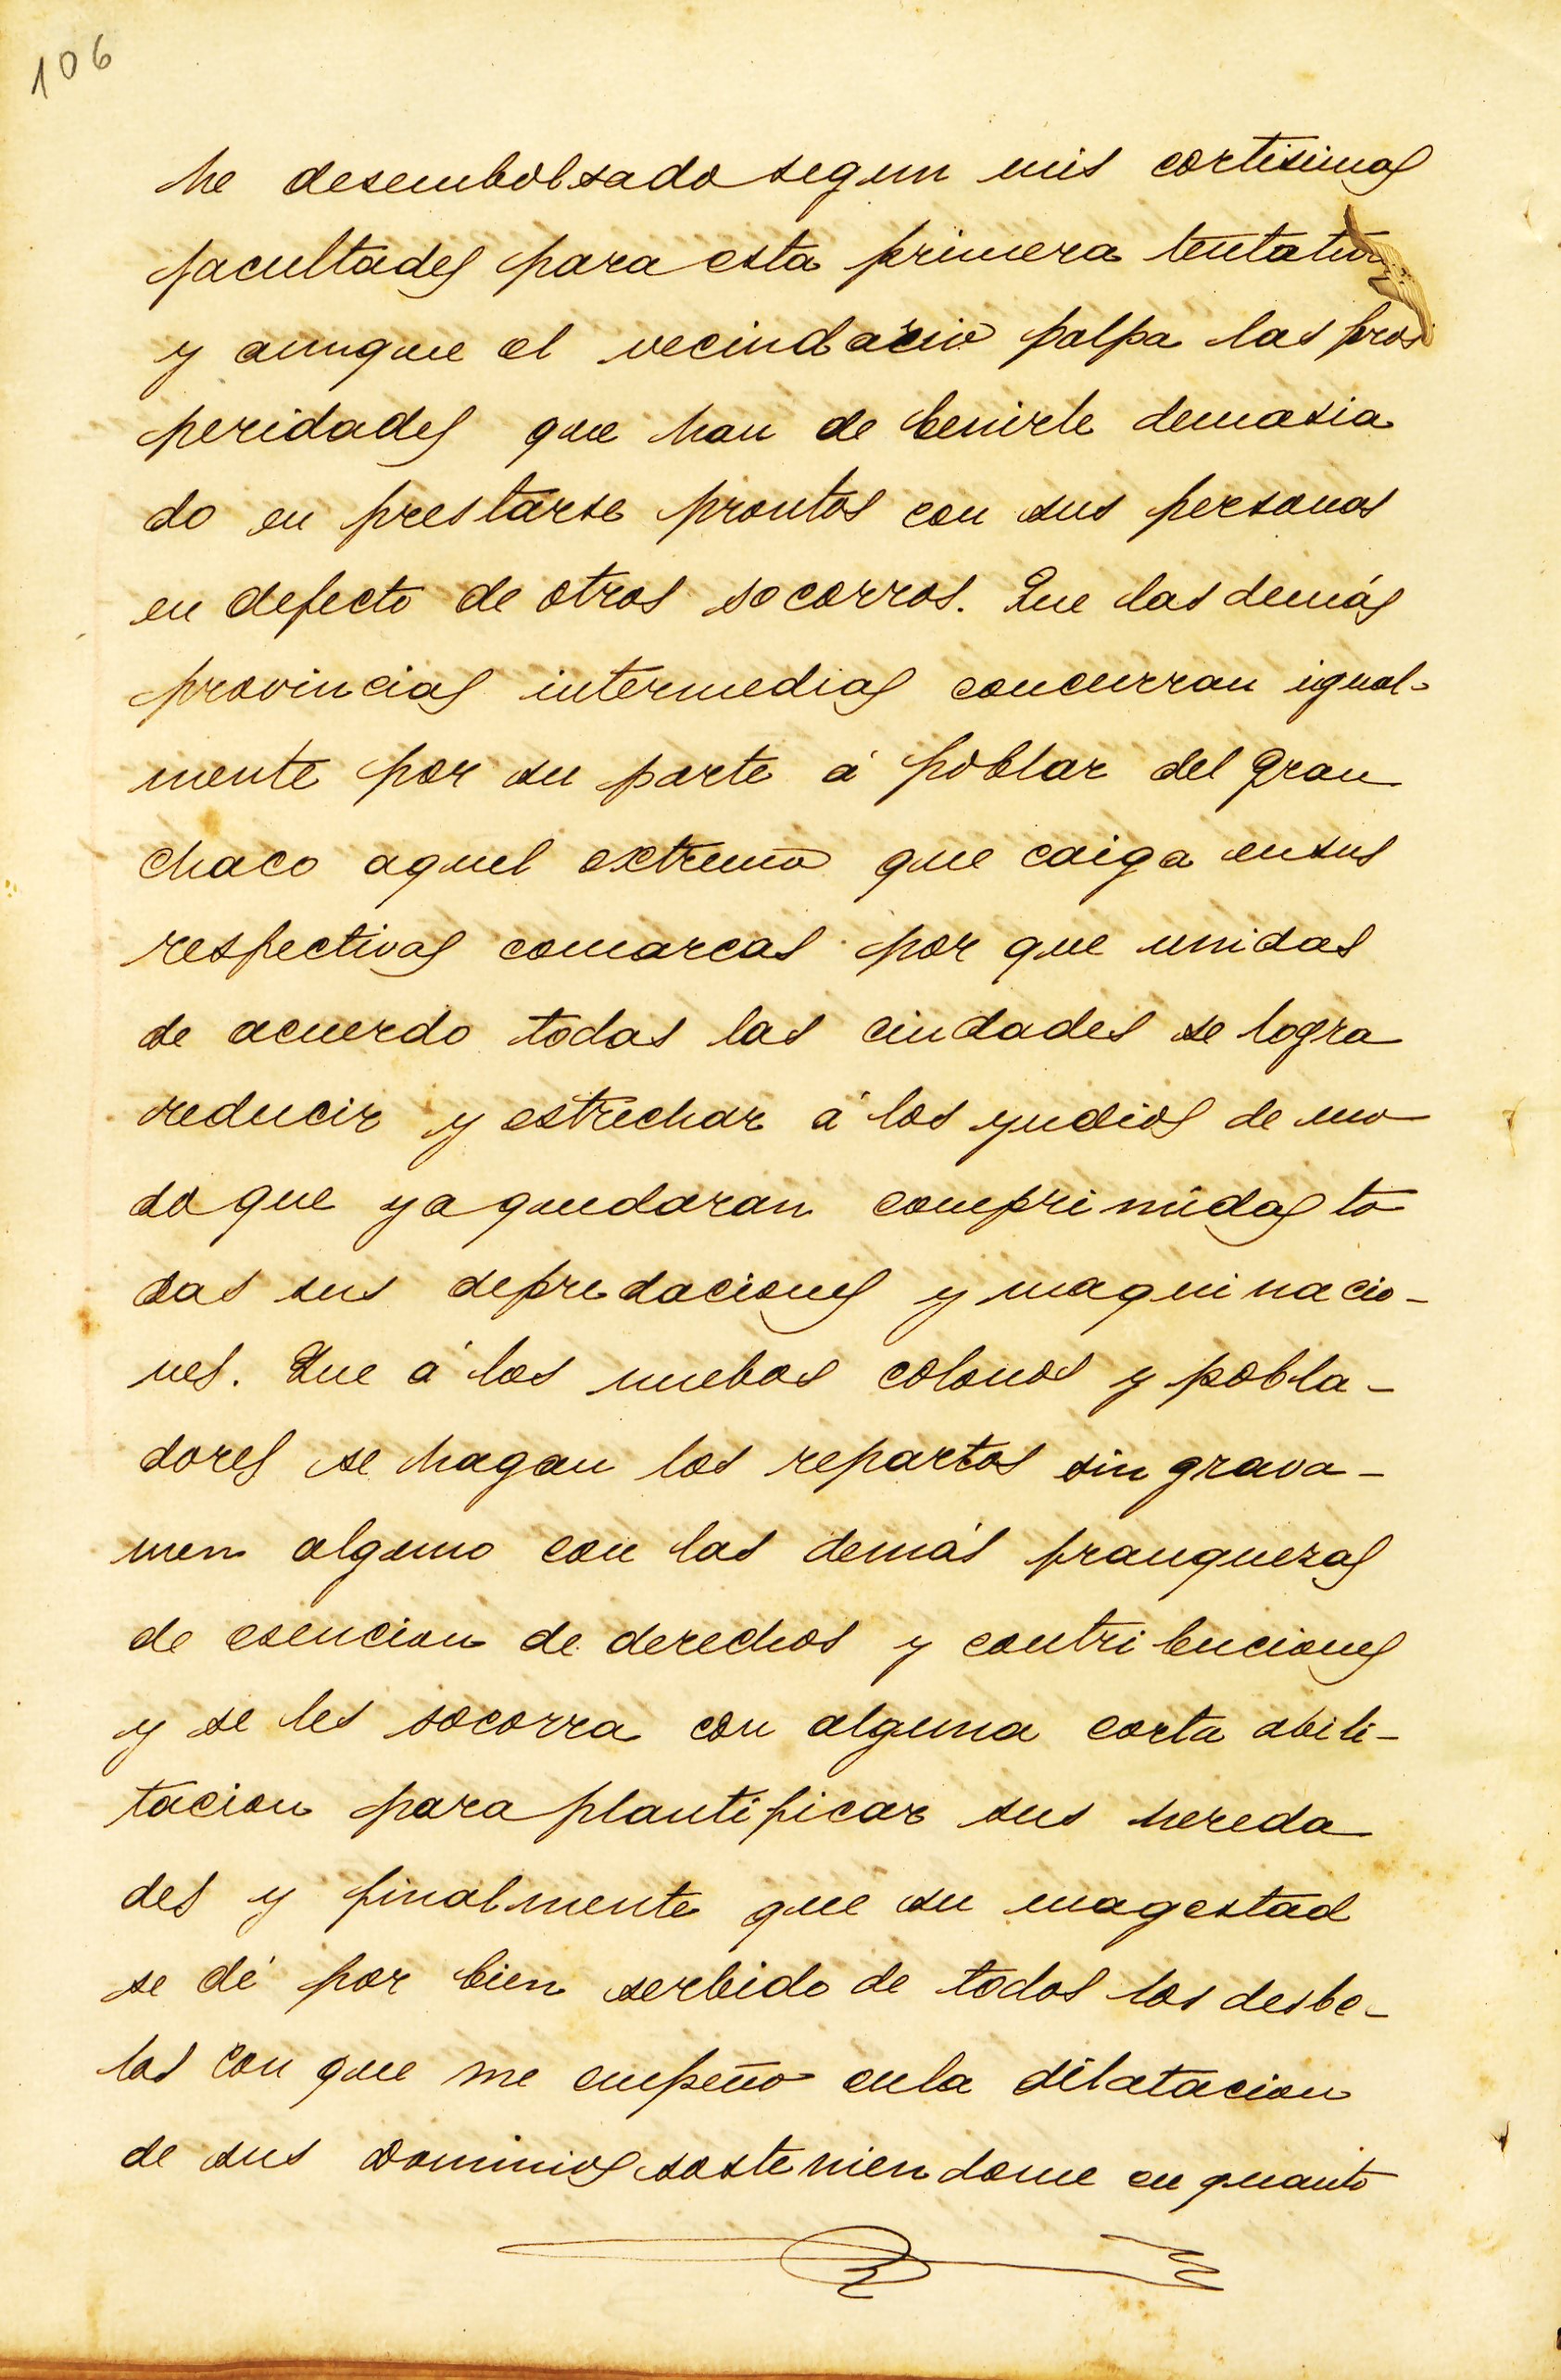 106
he desembolsado segun mis cortisimas
facultades para esta primera tentativa
y aunque el vecindario palpa las pros
peridades que han de benirle demasia
do en prestarse prontos con sus personas
en defecto de otros socorros. Que las demás
provincias intermedias concurran igual-
mente por su parte á poblar del Gran
chaco aquel extremo que caiga ensus
respectivas comarcas por que unidas
de acuerdo todas las ciudades se logra
reducir y estrechar á los yndios de mo
do que ya quedaran comprimidas to
das sus depredaciones y maquinacio-
nes. Que á los nuebos colonos y pobla-
dores se hagan los repartos sin grava-
men alguno con las demás franquezas
de esencion de derechos y contribuciones
y se les socorra con alguna corta abili-
tacion para plantificar sus hereda
des y finalmente que su magestad
se dé por bien serbido de todos los desbe-
los con que me empeño enla dilatacion
de sus Dominios sosteniendome en quanto